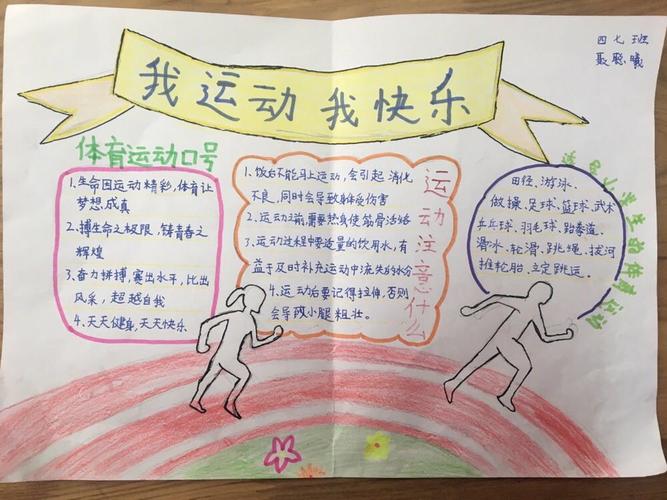 四七班
聂聪曦
我运动 我快乐
体育运动口号
1、生命因运动精彩,体育让
梦想成真
2、搏生命之极限,铸青春之
辉煌
3、奋力拼搏,赛出水平,比出
风采,超越自我
4、天天健身,天天快乐
运动注意什么
1、饭后不能马上运动,会引起消化
不良,同时会导致身体受伤害
2、运动之前,需要热身使筋骨活络
3、运动过程中要适量的饮用水,有
益于及时补充运动中流失的水份
4、运动后要记得拉伸,否则
会导致小腿粗壮。
适合小学生的体育运动
田径、游泳、
做操、足球、篮球、武术
乒乓球、羽毛球、跆拳道、
滑冰、轮滑、跳绳、拔河
推轮胎、立定跳远。